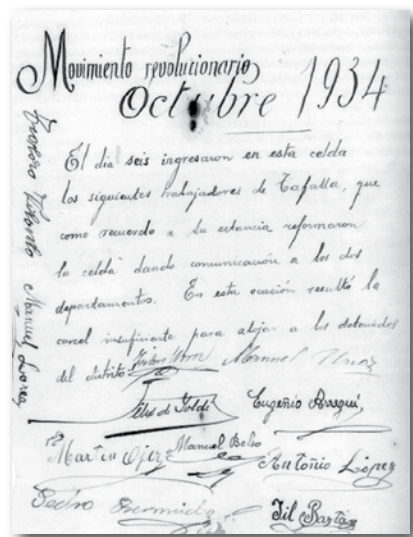 Movimiento revolucionario
Octubre 1934
El dia seis ingresaron en esta celda
los siguientes trabajadores de Tafalla, que
como recuerdo a su estancia reformaron
la celda dando comunicación a los dos
departamentos. En esta ocasión resultó la
carcel insuficiente para alojar a los detenidos
del distrito. Manuel
Felis de Goldi Eugenio Arregui,
Martin Ojer Manuel Belso
Antonio López
Pedro Bermudez
Jil Baztán
Manuel